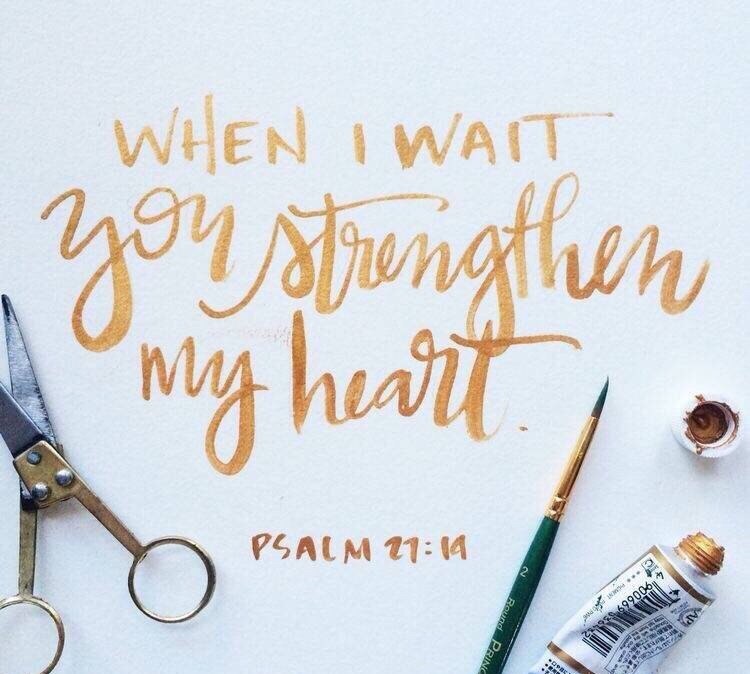 WHEN I WAIT
you strengthen
my heart.
PSALM 27:14
2
Round
PRINC